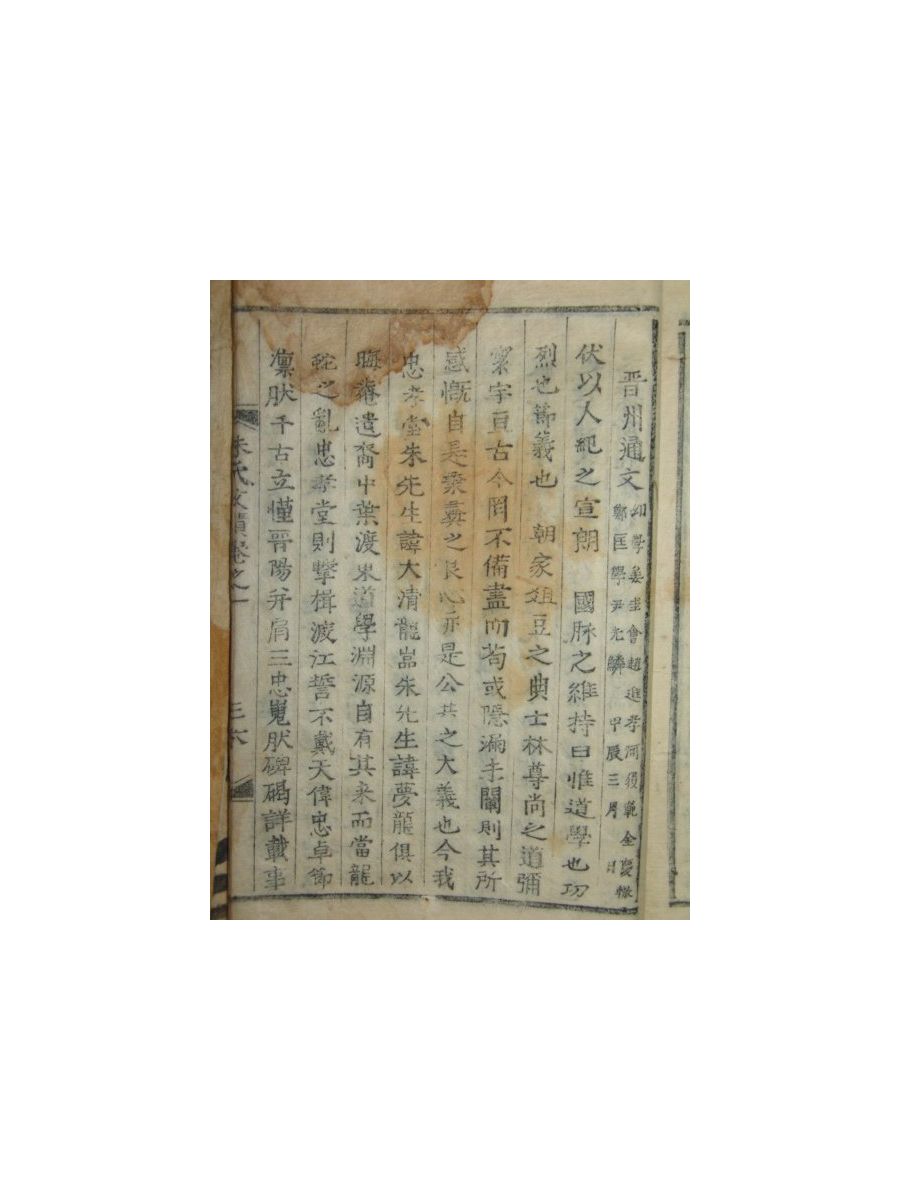 晋州通文
幼學姜圭會趙進孝河範金慶
鄭匡學尹光鱗 甲辰三月 日
伏以人紀之宣朗 國脉之維持曰惟道學也功
烈也節義也 朝家俎豆之典士林尊尚之道彌
寰宇亘古今罔不備盡而苟或隱漏未闡則其所
感慨自是秉彝之良心亦是公共之大義也今我
忠孝堂朱先生諱大淸龍嵓朱先生諱夢龍俱以
晦菴遺裔中葉渡東道學淵源自有其来而當龍
蛇之亂忠孝堂則擊楫渡江誓不戴天偉忠卓節
凜然千古立慬晋陽幷肩三忠嵬然碑碣詳載事
朱氏文蹟卷之一
三六